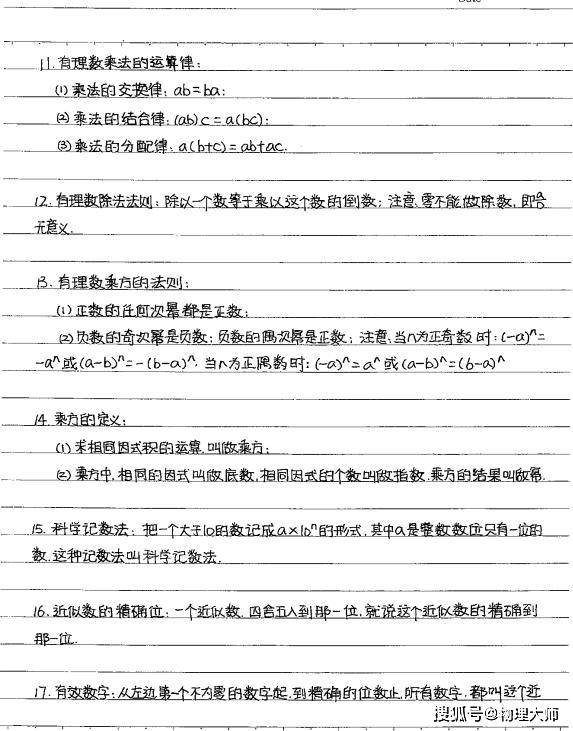 11. 有理数乘法的运算律:
(1) 乘法的交换律: ab=ba;
(2) 乘法的结合律: (ab)c=a(bc);
(3) 乘法的分配律: a(b+c)=ab+ac.
12. 有理数除法法则: 除以一个数等于乘以这个数的倒数; 注意、零不能做除数, 即a/0
无意义.
13. 有理数乘方的法则:
(1) 正数的任何次幂都是正数;
(2) 负数的奇次幂是负数; 负数的偶次幂是正数; 注意、当n为正奇数时: (-a)^n=
-a^n或(a-b)^n=-(b-a)^n. 当n为正偶数时: (-a)^n=a^n或(a-b)^n=(b-a)^n
14. 乘方的定义:
(1) 求相同因式积的运算, 叫做乘方;
(2) 乘方中, 相同的因式叫做底数, 相同因式的个数叫做指数. 乘方的结果叫做幂.
15. 科学记数法: 把一个大于10的数记成a×10^n的形式, 其中a是整数数位只有一位的
数, 这种记数法叫科学记数法.
16. 近似数的精确位: 一个近似数, 四舍五入到那一位, 就说这个近似数的精确到
那一位.
17. 有效数字: 从左边第一个不为零的数字起, 到精确的位数止, 所有数字, 都叫这个近
搜狐号@物理大师